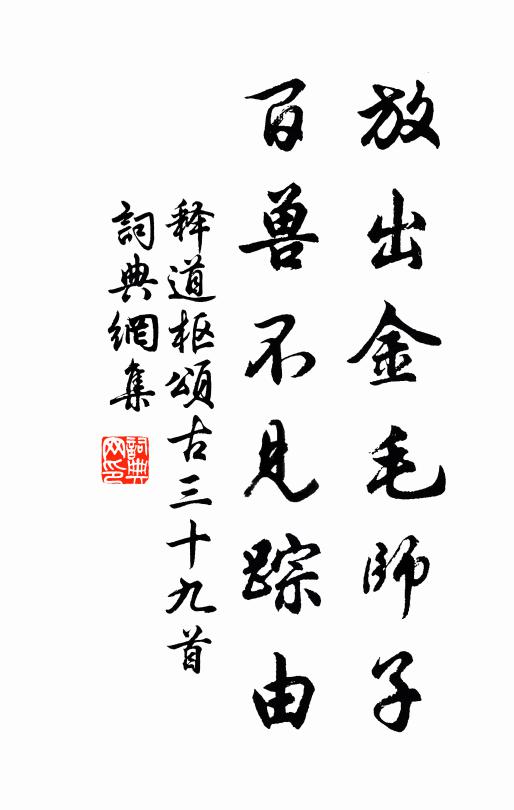 放出金毛師子
百兽不见踪由
释道枢頌古三十九首
詞典網集
詞典网印